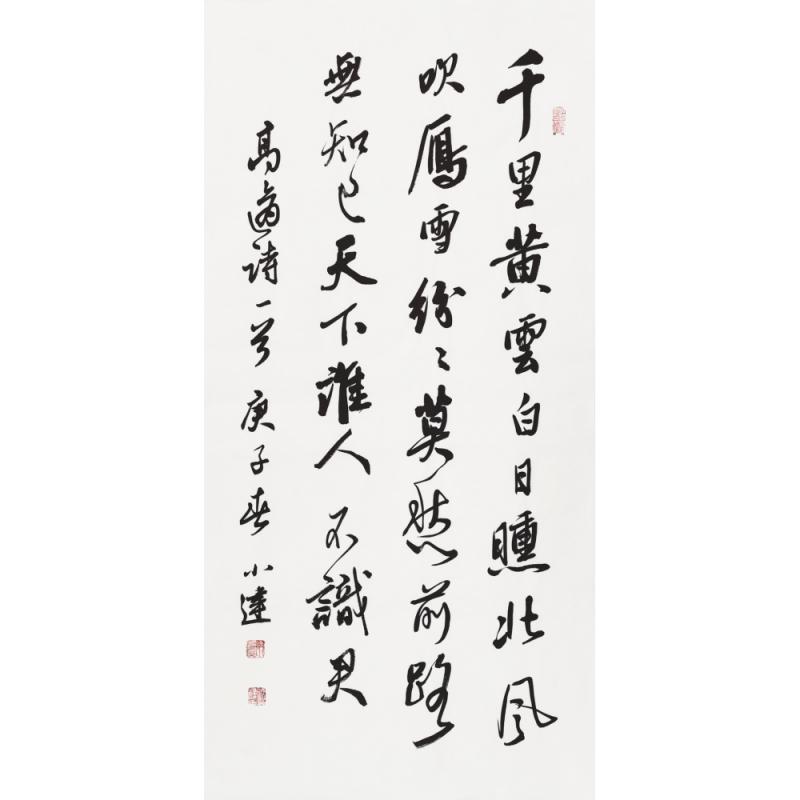 千里黄雲白日曛北風
吹鴈雪紛〻莫愁前路
無知己天下誰人不識君
高適詩一首 庚子春 小達